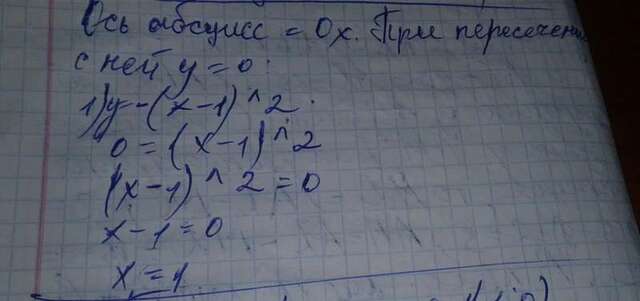 Ось абсцисс = Ox. При пересечении
с ней y = 0:
1) y - (x - 1) ^ 2.
0 = (x - 1) ^ 2
(x - 1) ^ 2 = 0
x - 1 = 0
x = 1